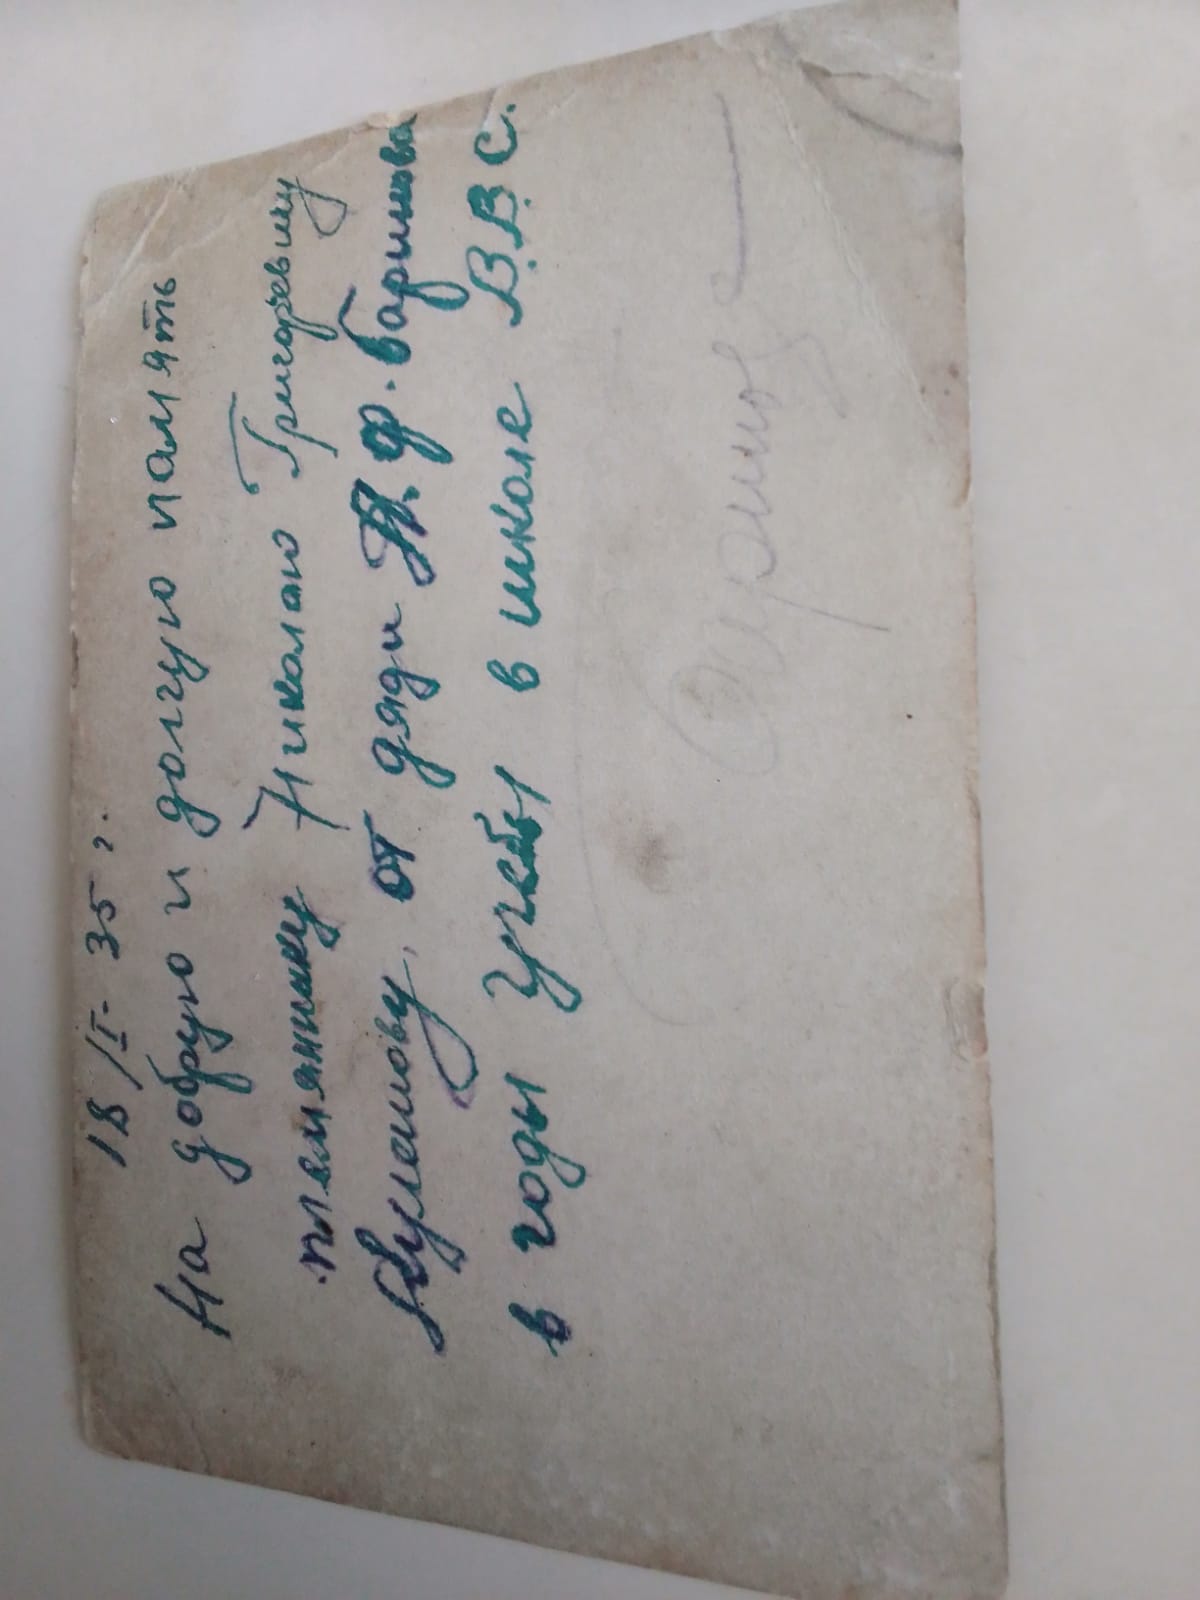 18/I-35 г.
На добрую и долгую память
племяннику Николаю Григорьевичу
от дяди Ф. Баринова
в годы учебы в школе В.В.С.